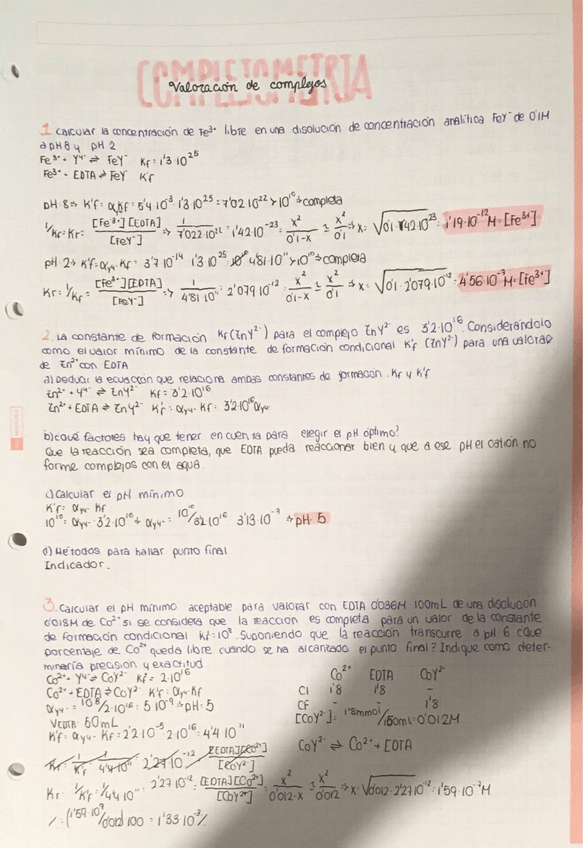 COMPLEJOMETRIA
Valoración de complejos
1. Calcular la concentración de Fe³⁺ libre en una disolución de concentración analítica FeY⁻ de 0'1M
a pH 8 y pH 2
Fe³⁺ + Y⁴⁻ ⇌ FeY⁻ Kf = 1'3·10²⁵
Fe³⁺ + EDTA ⇌ FeY⁻ K'f
pH = 8 ⇒ K'f = α·Kf = 5'4·10⁻³ · 1'3·10²⁵ = 7'02·10²² > 10¹⁰ → completa
1/K'f = Kr = [Fe³⁺][EDTA]/[FeY⁻] ⇒ 1/7'022·10²² = 1'42·10⁻²³ = x²/0'1-x ≃ x²/0'1 ⇒ x = √0'1·1'42·10⁻²³ = 1'19·10⁻¹² M = [Fe³⁺]
pH = 2 → K'f = αy₄₋·Kf = 3'7·10⁻¹⁴ · 1'3·10²⁵ = 4'81·10¹¹ > 10¹⁰ → completa
Kr = 1/K'f = [Fe³⁺][EDTA]/[FeY⁻] ⇒ 1/4'81·10¹¹ = 2'079·10⁻¹² = x²/0'1-x ≃ x²/0'1 ⇒ x = √0'1·2'079·10⁻¹² = 4'56·10⁻⁷ M = [Fe³⁺]
2. La constante de formación Kf (ZnY²⁻) para el complejo ZnY²⁻ es 3'2·10¹⁶. Considerándolo
como el valor mínimo de la constante de formación condicional K'f (ZnY²⁻) para una valorac
de Zn²⁺ con EDTA
a) Deducir la ecuación que relaciona ambas constantes de formación. Kf y K'f
Zn²⁺ + Y⁴⁻ ⇌ ZnY²⁻ Kf = 3'2·10¹⁶
Zn²⁺ + EDTA ⇌ ZnY²⁻ K'f = αy₄₋·Kf = 3'2·10¹⁶αy₄₋
b) ¿Qué factores hay que tener en cuenta para elegir el pH óptimo?
Que la reacción sea completa, que EDTA pueda reaccionar bien y que a ese pH el catión no
forme complejos con el agua
c) Calcular el pH mínimo
K'f = αy₄₋·Kf
10¹⁰ = αy₄₋·3'2·10¹⁶ → αy₄₋ = 10¹⁰/3'2·10¹⁶ = 3'13·10⁻⁷ → pH = 5
d) Métodos para hallar punto final
Indicador.
3. Calcular el pH mínimo aceptable para valorar con EDTA 0'036M 100mL de una disolución
0'018M de Co²⁺ si se considera que la reacción es completa para un valor de la constante
de formación condicional K'f = 10⁸. Suponiendo que la reacción transcurre a pH 6 ¿Que
porcentaje de Co²⁺ queda libre cuando se ha alcanzado el punto final? Indique como deter-
minaría precisión y exactitud
Co²⁺ + Y⁴⁻ ⇌ CoY²⁻ Kf = 2·10¹⁶
Co²⁺ + EDTA ⇌ CoY²⁻ K'f = αy₄₋·Kf
αy₄₋ = 10⁸/2·10¹⁶ = 5·10⁻⁹ → pH = 5
VEDTA = 50mL
K'f = αy₄₋·Kf = 2'2·10⁻⁵·2·10¹⁶ = 4'4·10¹¹
Co²⁺ EDTA CoY²⁻
Ci 1'8 1'8 –
Cf – – 1'8
[CoY²⁻] = 1'8mmol/150mL = 0'012M
CoY²⁻ ⇌ Co²⁺ + EDTA
Kr = 1/K'f = 1/4'4·10¹¹ = 2'27·10⁻¹² = [EDTA][Co²⁺]/[CoY²⁻]
Kr = 1/K'f = 1/4'4·10¹¹ = 2'27·10⁻¹² = [EDTA][Co²⁺]/[CoY²⁻] = x²/0'012-x ≃ x²/0'012 ⇒ x = √0'012·2'27·10⁻¹² = 1'59·10⁻⁷ M
% = (1'59·10⁻⁷/0'012)·100 = 1'33·10⁻³%